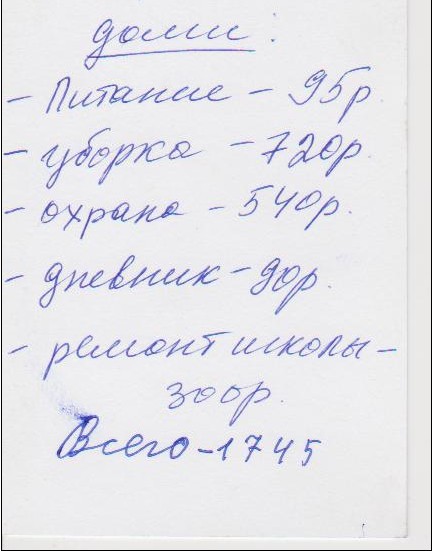 долги:
- Питание - 95р
- уборка - 720р.
- охрана - 540р.
- дневник - 90р.
- ремонт школы -
300р.
Всего - 1745